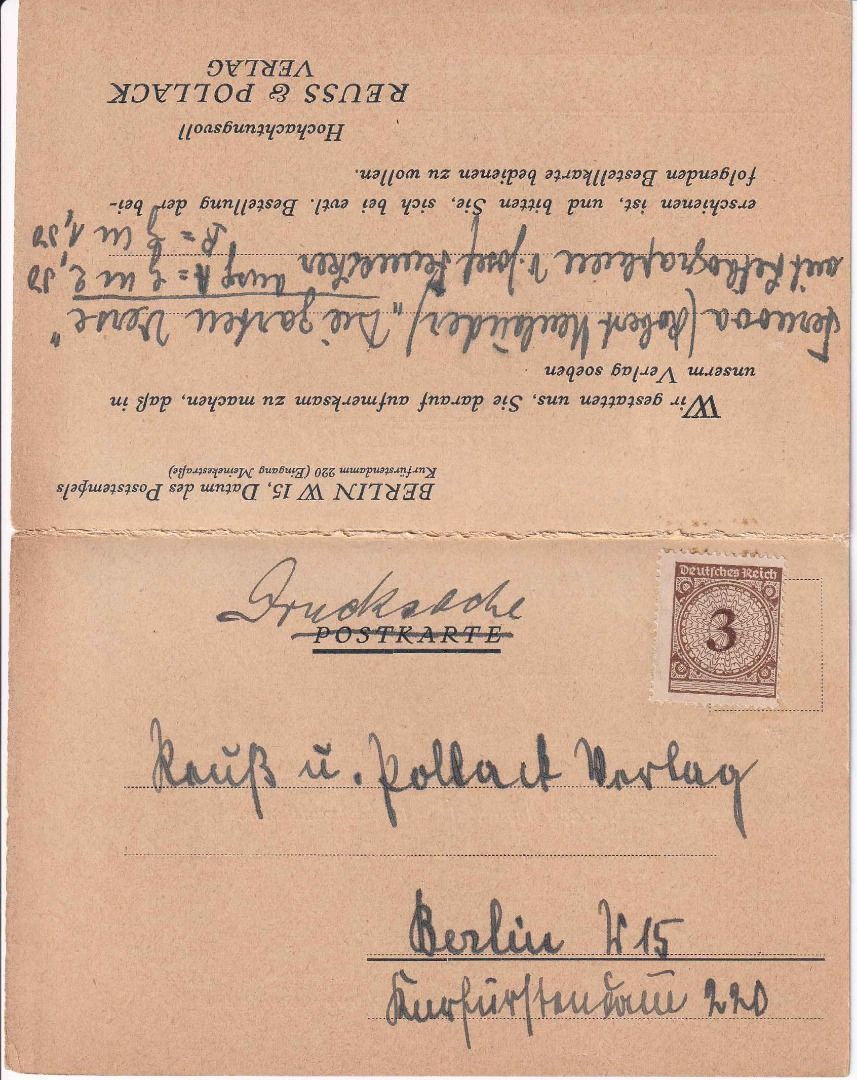 BERLIN W 15, Datum des Poststempels
Kurfürstendamm 220 (Eingang Meinekestraße)
Wir gestatten uns, Sie darauf aufmerksam zu machen, daß in
unserm Verlag soeben
(Robert Neuländer) „Die zarten Verse"
mit Lithographien v. Josef Fenneker
Ausg A = g m 2,50
B = g m 1,50
erschienen, ist, und bitten Sie, sich bei evtl. Bestellung der bei-
folgenden Bestellkarte bedienen zu wollen.
Hochachtungsvoll
REUSS & POLLACK
VERLAG
Drucksache
POSTKARTE
Deutsches Reich
3
Reuß u. Pollack Verlag
Berlin W 15
Kurfürstendamm 220